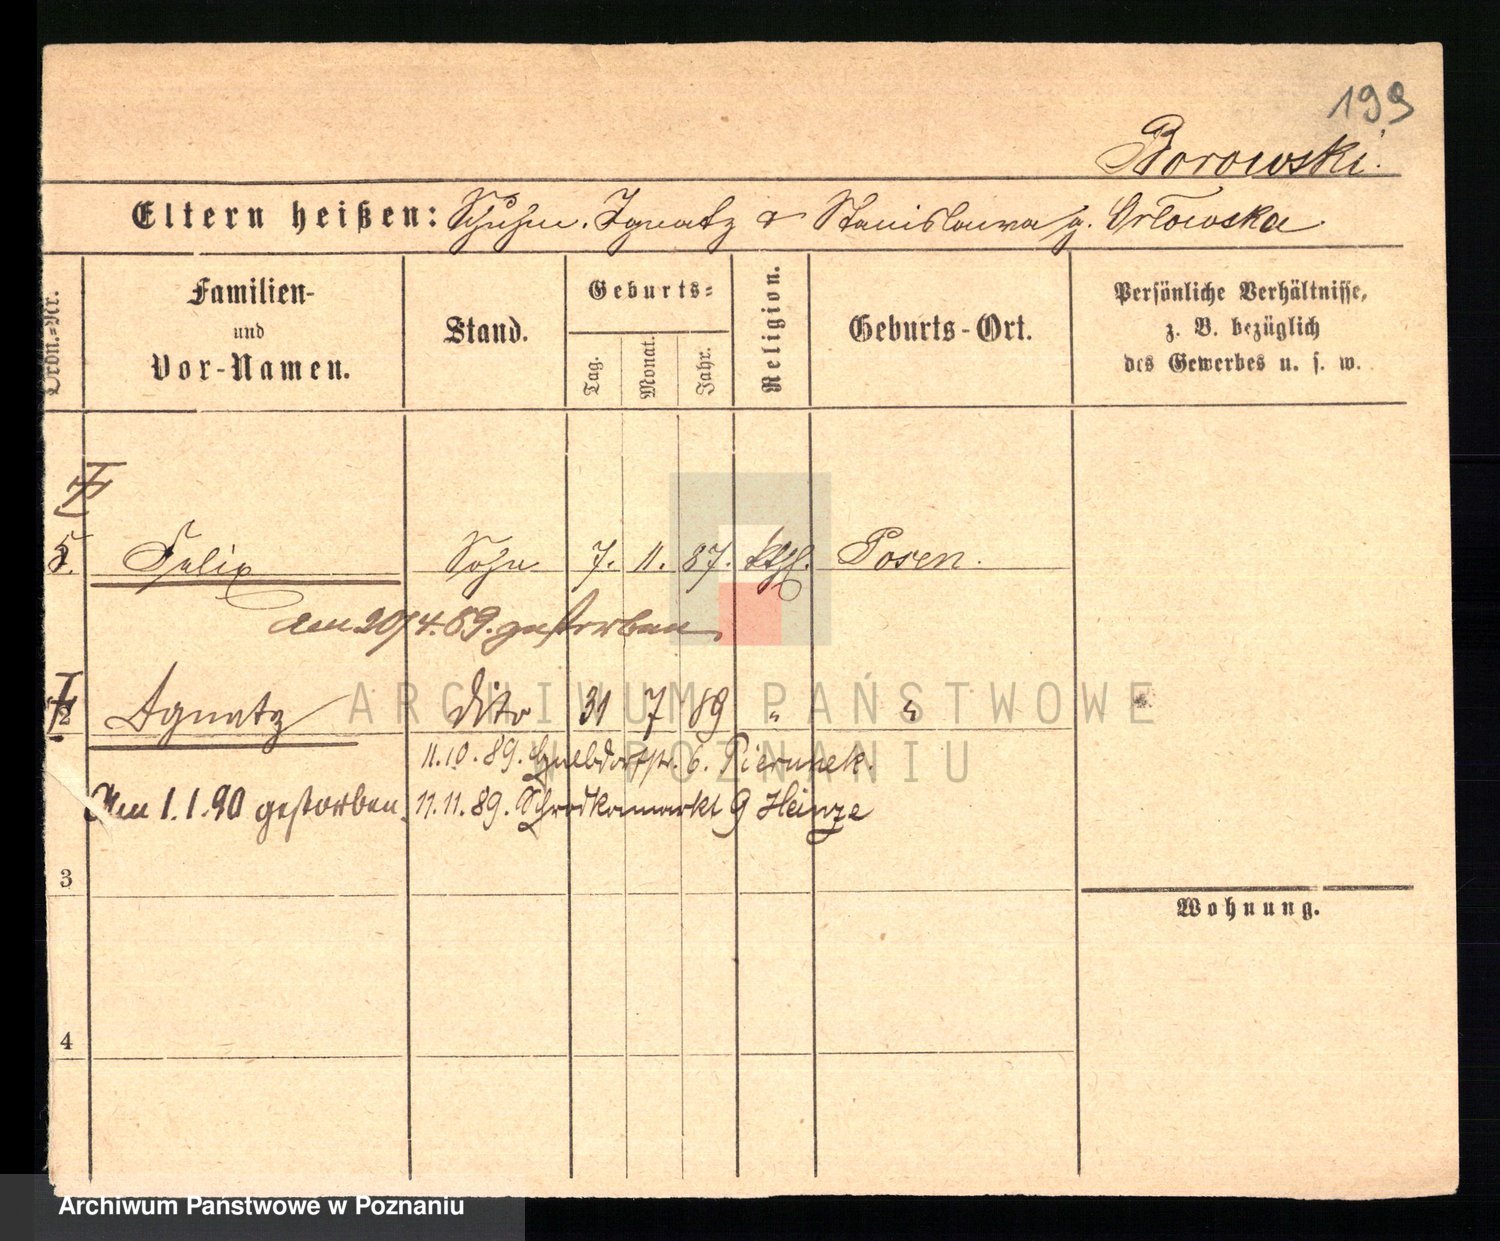 199
Borowski.
Eltern heißen: Ignatz & Stanislawa g. Orłowska.
Ordn.-Nr.
Familien-
und
Vor-Namen.
Stand.
Geburts-
Tag.
Monat.
Jahr.
Religion.
Geburts-Ort.
Persönliche Verhältnisse,
z. B. bezüglich
des Gewerbes u. s. w.
5. Felix Sohn 7. 11. 87. kth. Posen.
am 20/4. 89. gestorben.
2 Ignatz dito 31 7 89 " "
11.10.89. 6. Pierunek.
Am 1.1.90 gestorben. 11.11.89. Schrodkamarkt 9 Heinze
3
Wohnung.
4
ARCHIWUM PAŃSTWOWE
W POZNANIU
Archiwum Państwowe w Poznaniu